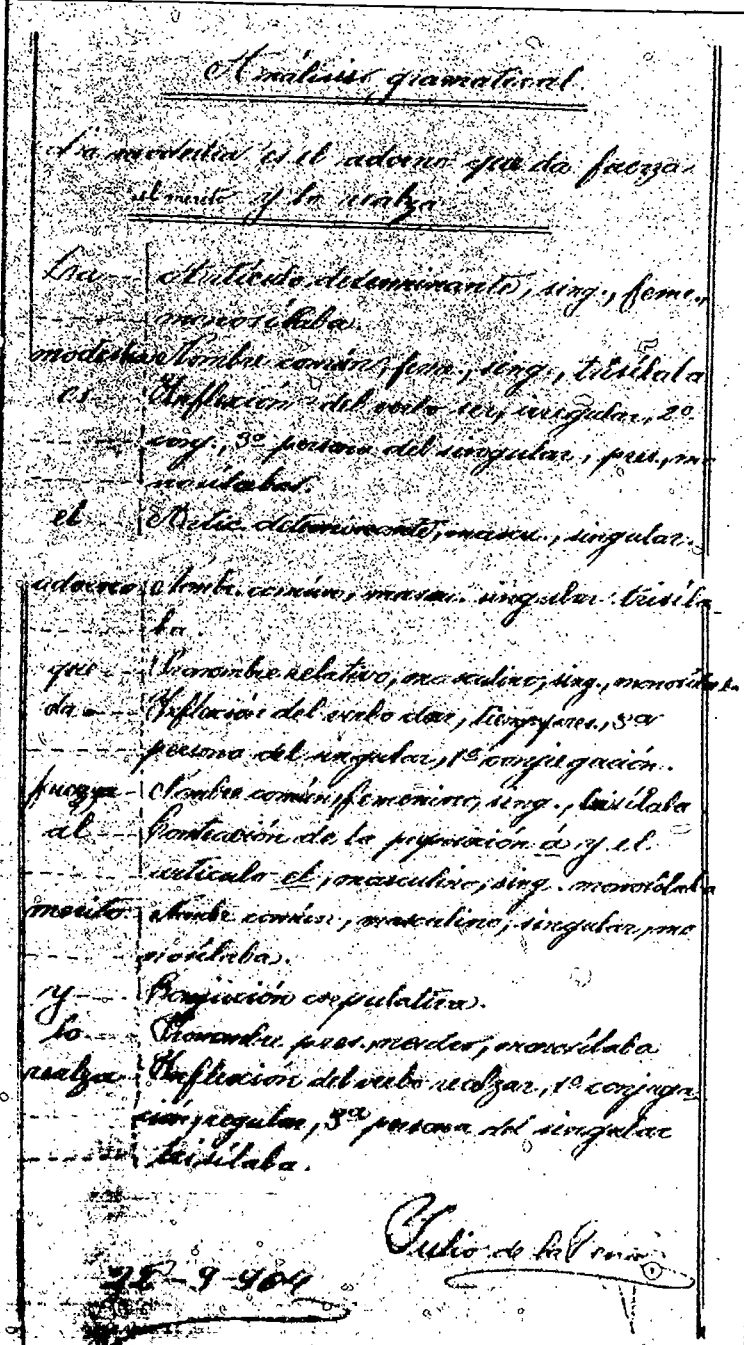 Análisis gramatical
La modestia es el adorno que da fuerza
al merito y lo realza
La Artículo determinante, sing., feme.,
monosílaba
modestia Nombre común, feme., sing., trisílaba
es Inflexión del verbo ser, irregular, 2ª
conj., 3ª persona del singular, pres., mo
nosílabas.
el Artic. determinante, mascu., singular.
adorno Nombre común, mascu. singular trisíla
ba.
que Pronombre relativo, masculino, sing., monosílaba
da Inflexión del verbo dar, pres., 3ª
persona del singular, 1ª conjugación.
fuerza Nombre común, femenino, sing., bisílaba
al Contracción de la preposición á y el
artículo el, masculino, sing. monosílaba
merito Nombre común, masculino, singular, mo
nosílaba.
y Conjución copulativa.
lo Pronombre pers., monosílaba
realza Inflexión del verbo realzar, 1ª conjuga
ción, regular, 3ª persona del singular
trisílaba.
Julio de la
-9-904